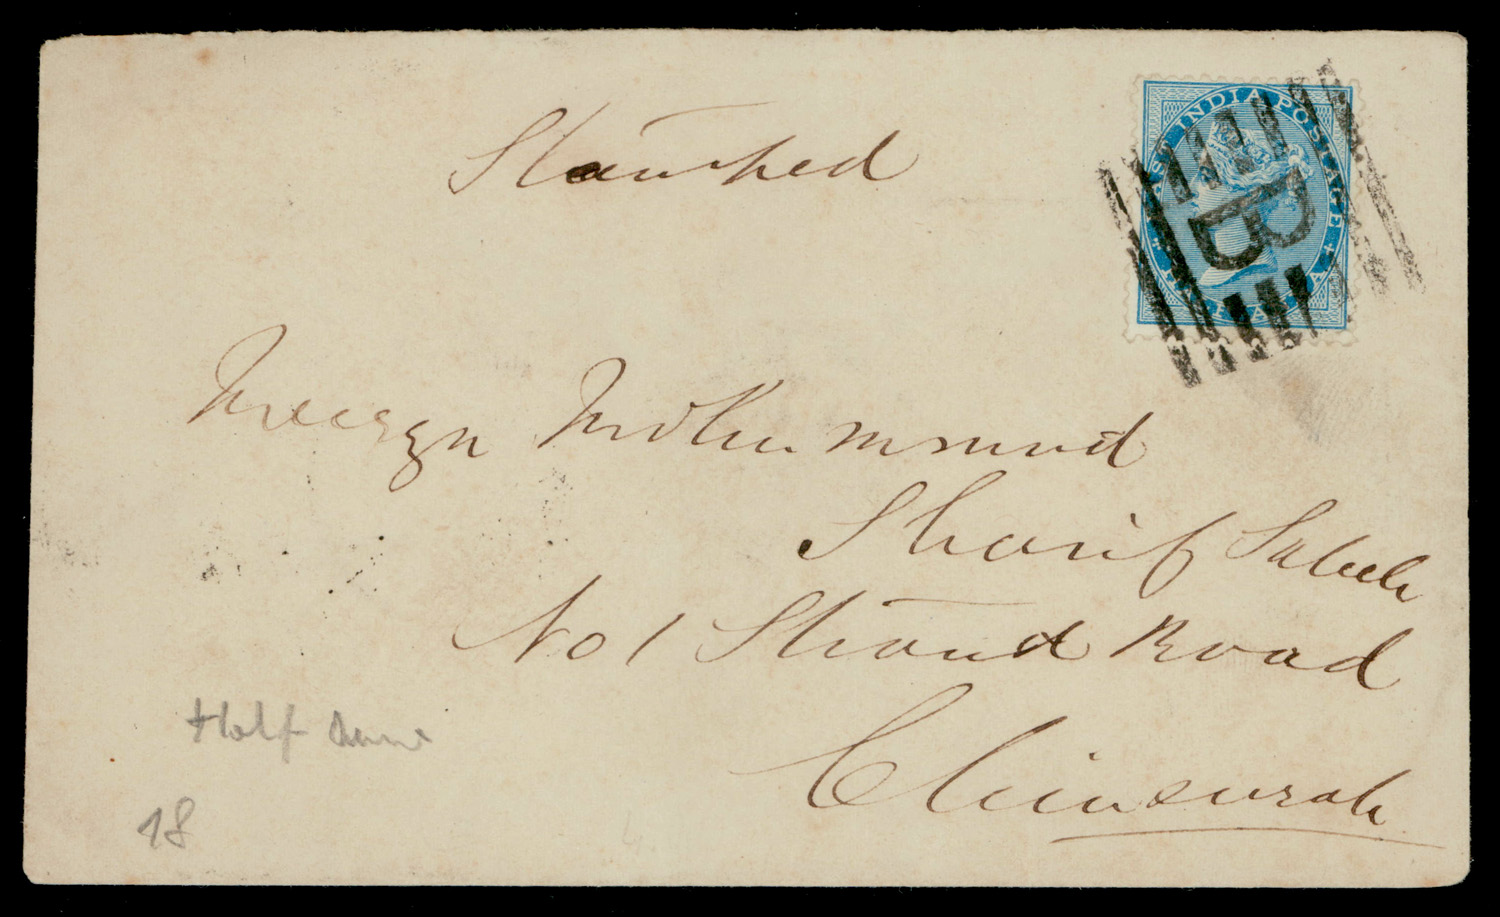 Stamped
EAST INDIA POSTAGE
HALF ANNA
B
Meerza Mohummud
Sharif Saheb
No 1 Strand Road
Chinsurah
Half Anna
18